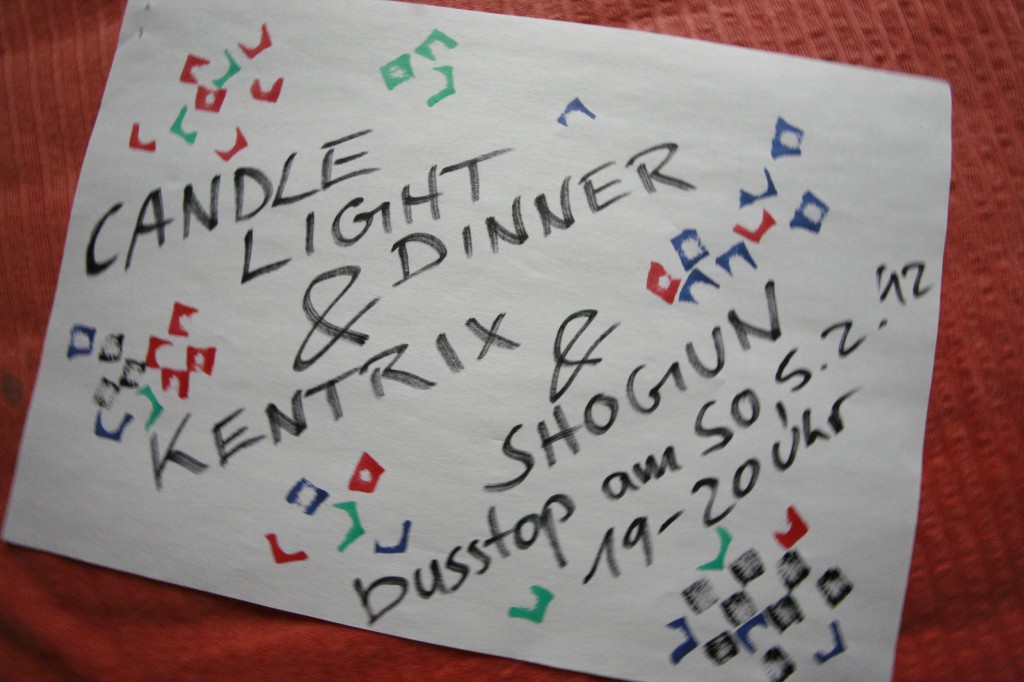 CANDLE
LIGHT
& DINNER
KENTRIX &
SHOGUN
busstop am SO, 5.2.'12
19-20 Uhr